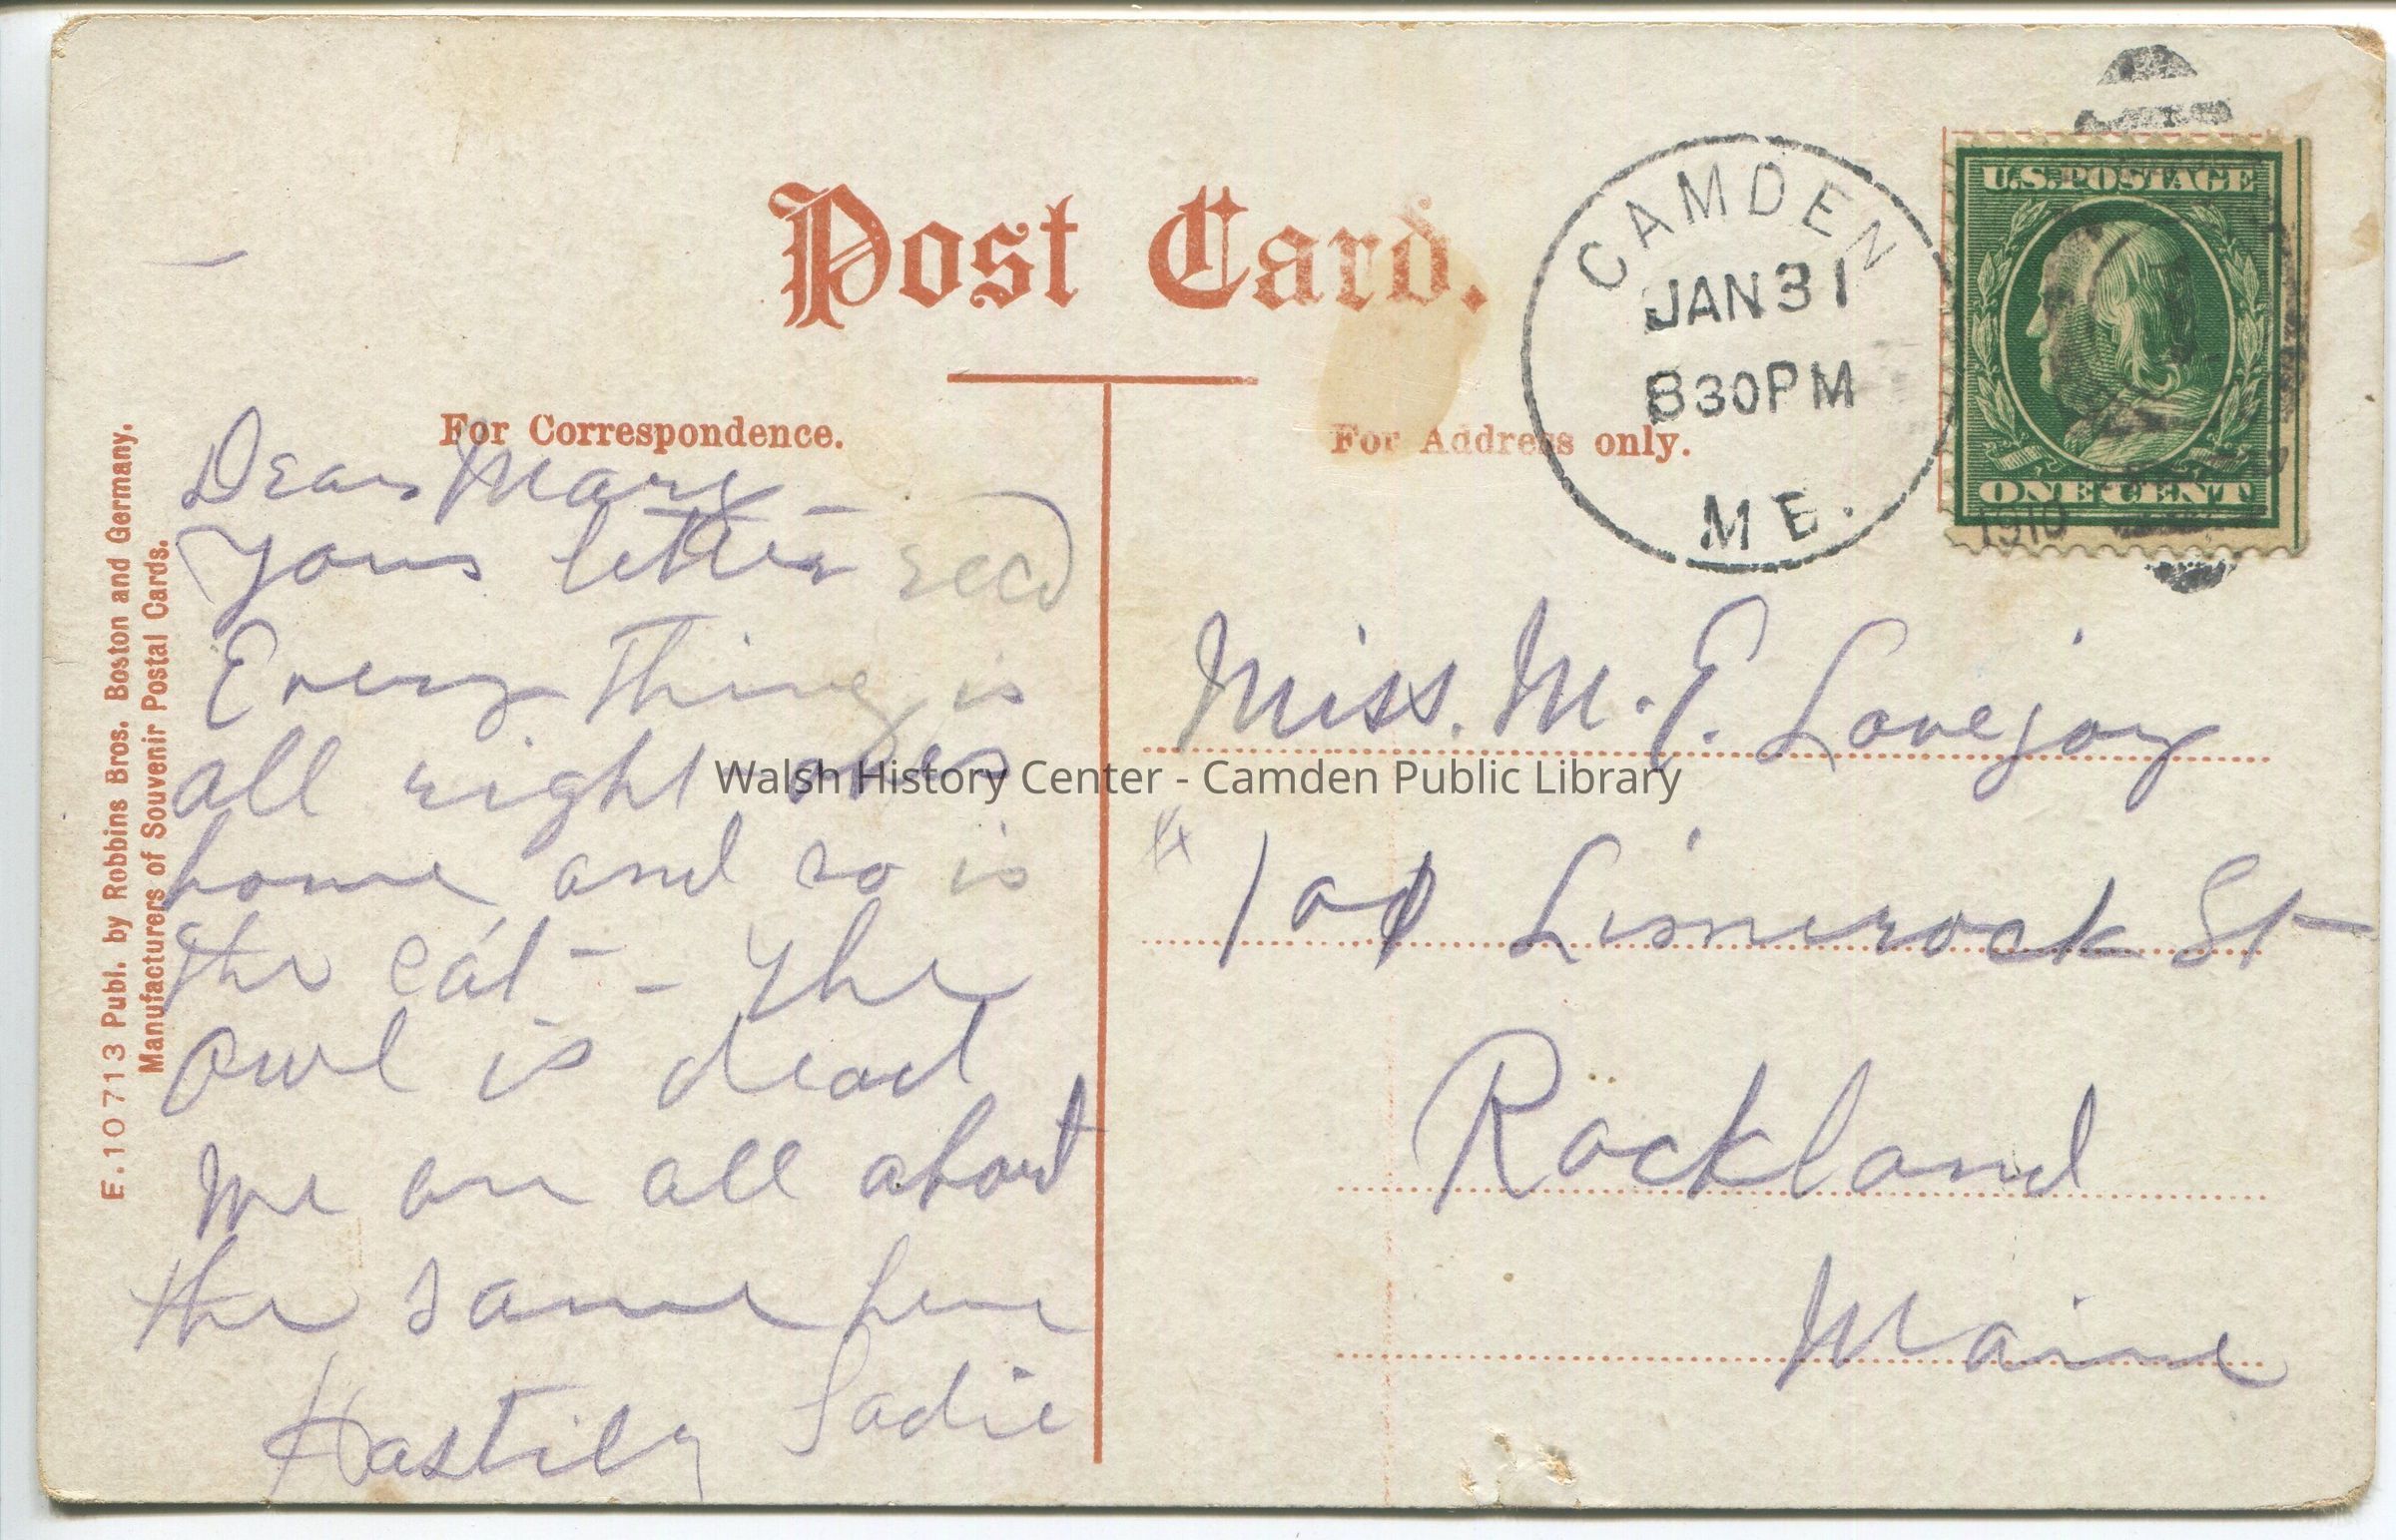 Post Card.
CAMDEN
JAN 31
830PM
ME.
U.S. POSTAGE
ONE CENT
1910
For Correspondence.
For Address only.
E.10713 Publ. by Robbins Bros. Boston and Germany.
Manufacturers of Souvenir Postal Cards.
Dear Mary -
Your letter recd
Every Thing is
all right over
home and so is
the cat - - The
owl is dead
We are all about
the same here
Hastily Sadie
Miss. M. E. Lovejoy
Limerock St
Rockland
Maine
Walsh History Center - Camden Public Library